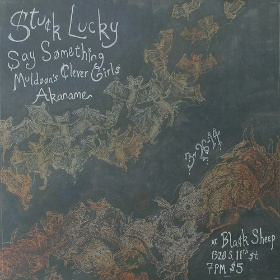 Stuck Lucky
Say Something
Muldoon's Clever Girls
Akaname
at Black Sheep
1320 S. 11th st
7PM $5